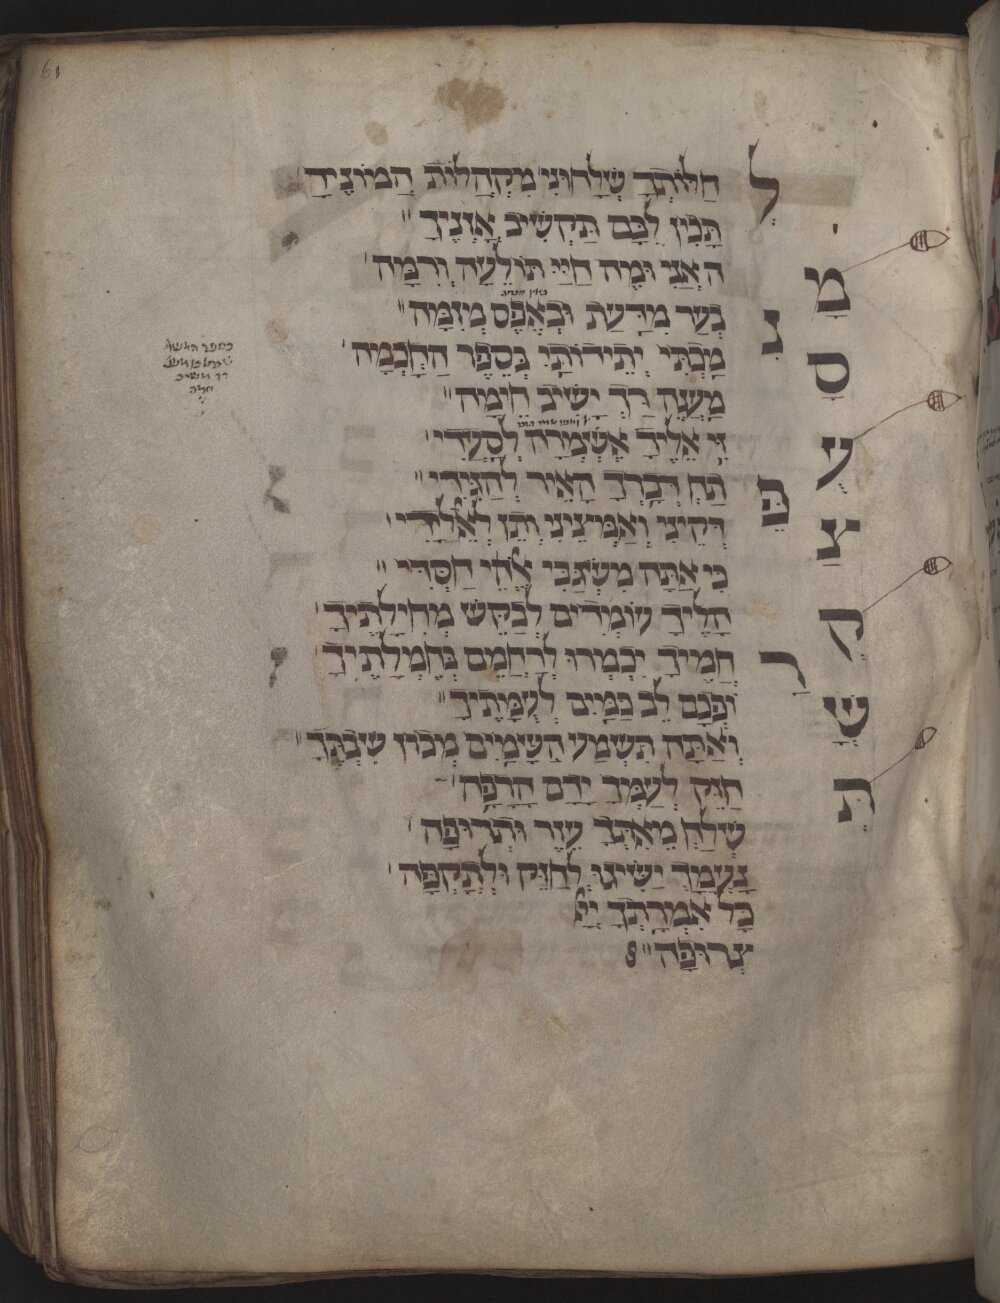 61
ל חַלּוֹתְךָ שְׁלָחוּנִי מִקְהֲלוֹת הֲמוֹנֶיךָ
תָּכִין לִבָּם תַּקְשִׁיב אָזְנֶיךָ
מָ ה אֲנִי וּמֶה חַיַּי תּוֹלֵעָה וְרִמָּה
נִ בְעַר מִדַּעַת וּבְאֶפֶס מְזִמָּה
סָ מַכְתִּי יְתֵידוֹתַי בְּסֵפֶר הַחָכְמָה
מַעֲנֶה רַךְ יָשִׁיב חֵימָה
עֻ זִּי אֵלֶיךָ אֶשְׁמֹרָה לְסַעֲדִי
פֶּ תַח דְּבָרְךָ הָאֵיר לְהַגִּידִי
צַ דְּקֵינִי וְאַמְּצֵינִי וְתֵן לְאֵל יָדִי
כִּי אַתָּה מִשְׂגַּבִּי אֱלֹהֵי חַסְדִּי
קְ הָלֶיךָ עוֹמְדִים לְבַקֵּשׁ מְחִילָתֶיךָ
רַ חֲמֶיךָ יִכְמְרוּ לְרַחֲמָם בְּחֶמְלָתֶיךָ
שָׁ וֹפְכִים לֵב כַּמַּיִם לְעֻמָּתֶיךָ
וְאַתָּה תִּשְׁמַע הַשָּׁמַיִם מְכוֹן שִׁבְתֶּךָ
תְּ חַזֵּק לְעַמְּךָ יָדָם הָרָפָה
שְׁלַח מֵאִתְּךָ עֵזֶר וּתְרוּפָה
נָעֳמָךְ יַשִּׂיגוּ לְחַזֵּק וּלְתָקְפָּה
כָּל אִמְרָתְךָ יְיָ
צְרוּפָה